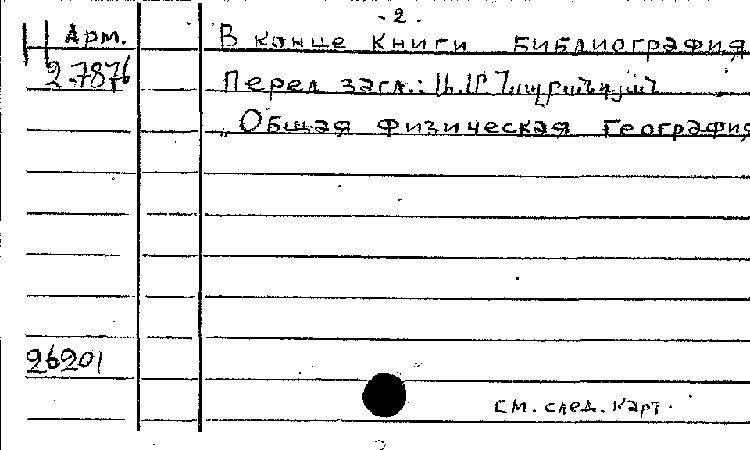 - 2 -
Арм. В конце книги библиография
2.7876 Перед загл.:
„Общая физическая география
26201
См. след. карт.